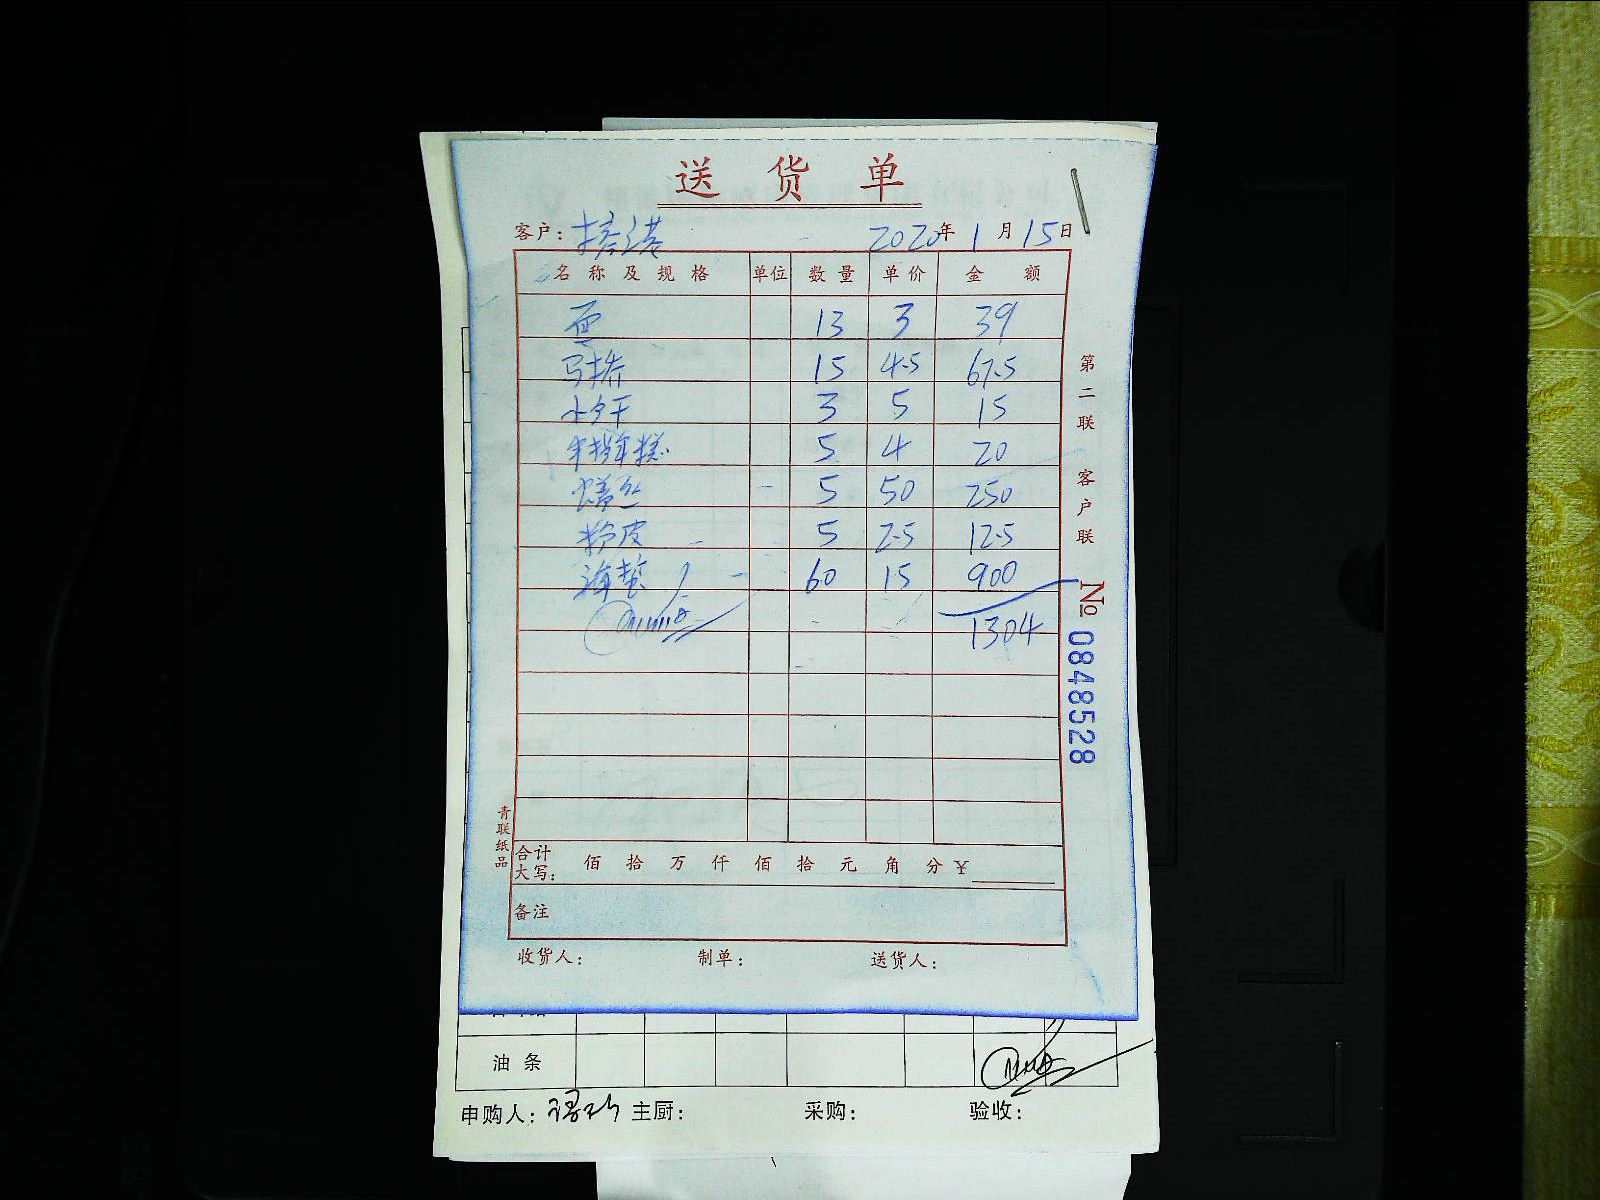 送货单
客户: 塔港 2020年1月15日
名称及规格 单位 数量 单价 金额
面 13 3 39
15 4.5 67.5
3 5 15
年糕 5 4 20
5 50 250
粉皮 5 2.5 12.5
海蜇 60 15 900
1304
合计大写: 佰拾万仟佰拾元角分¥
备注
收货人: 制单: 送货人:
第二联 客户联
№ 0848528
青联纸品
油条
申购人: 主厨: 采购: 验收: